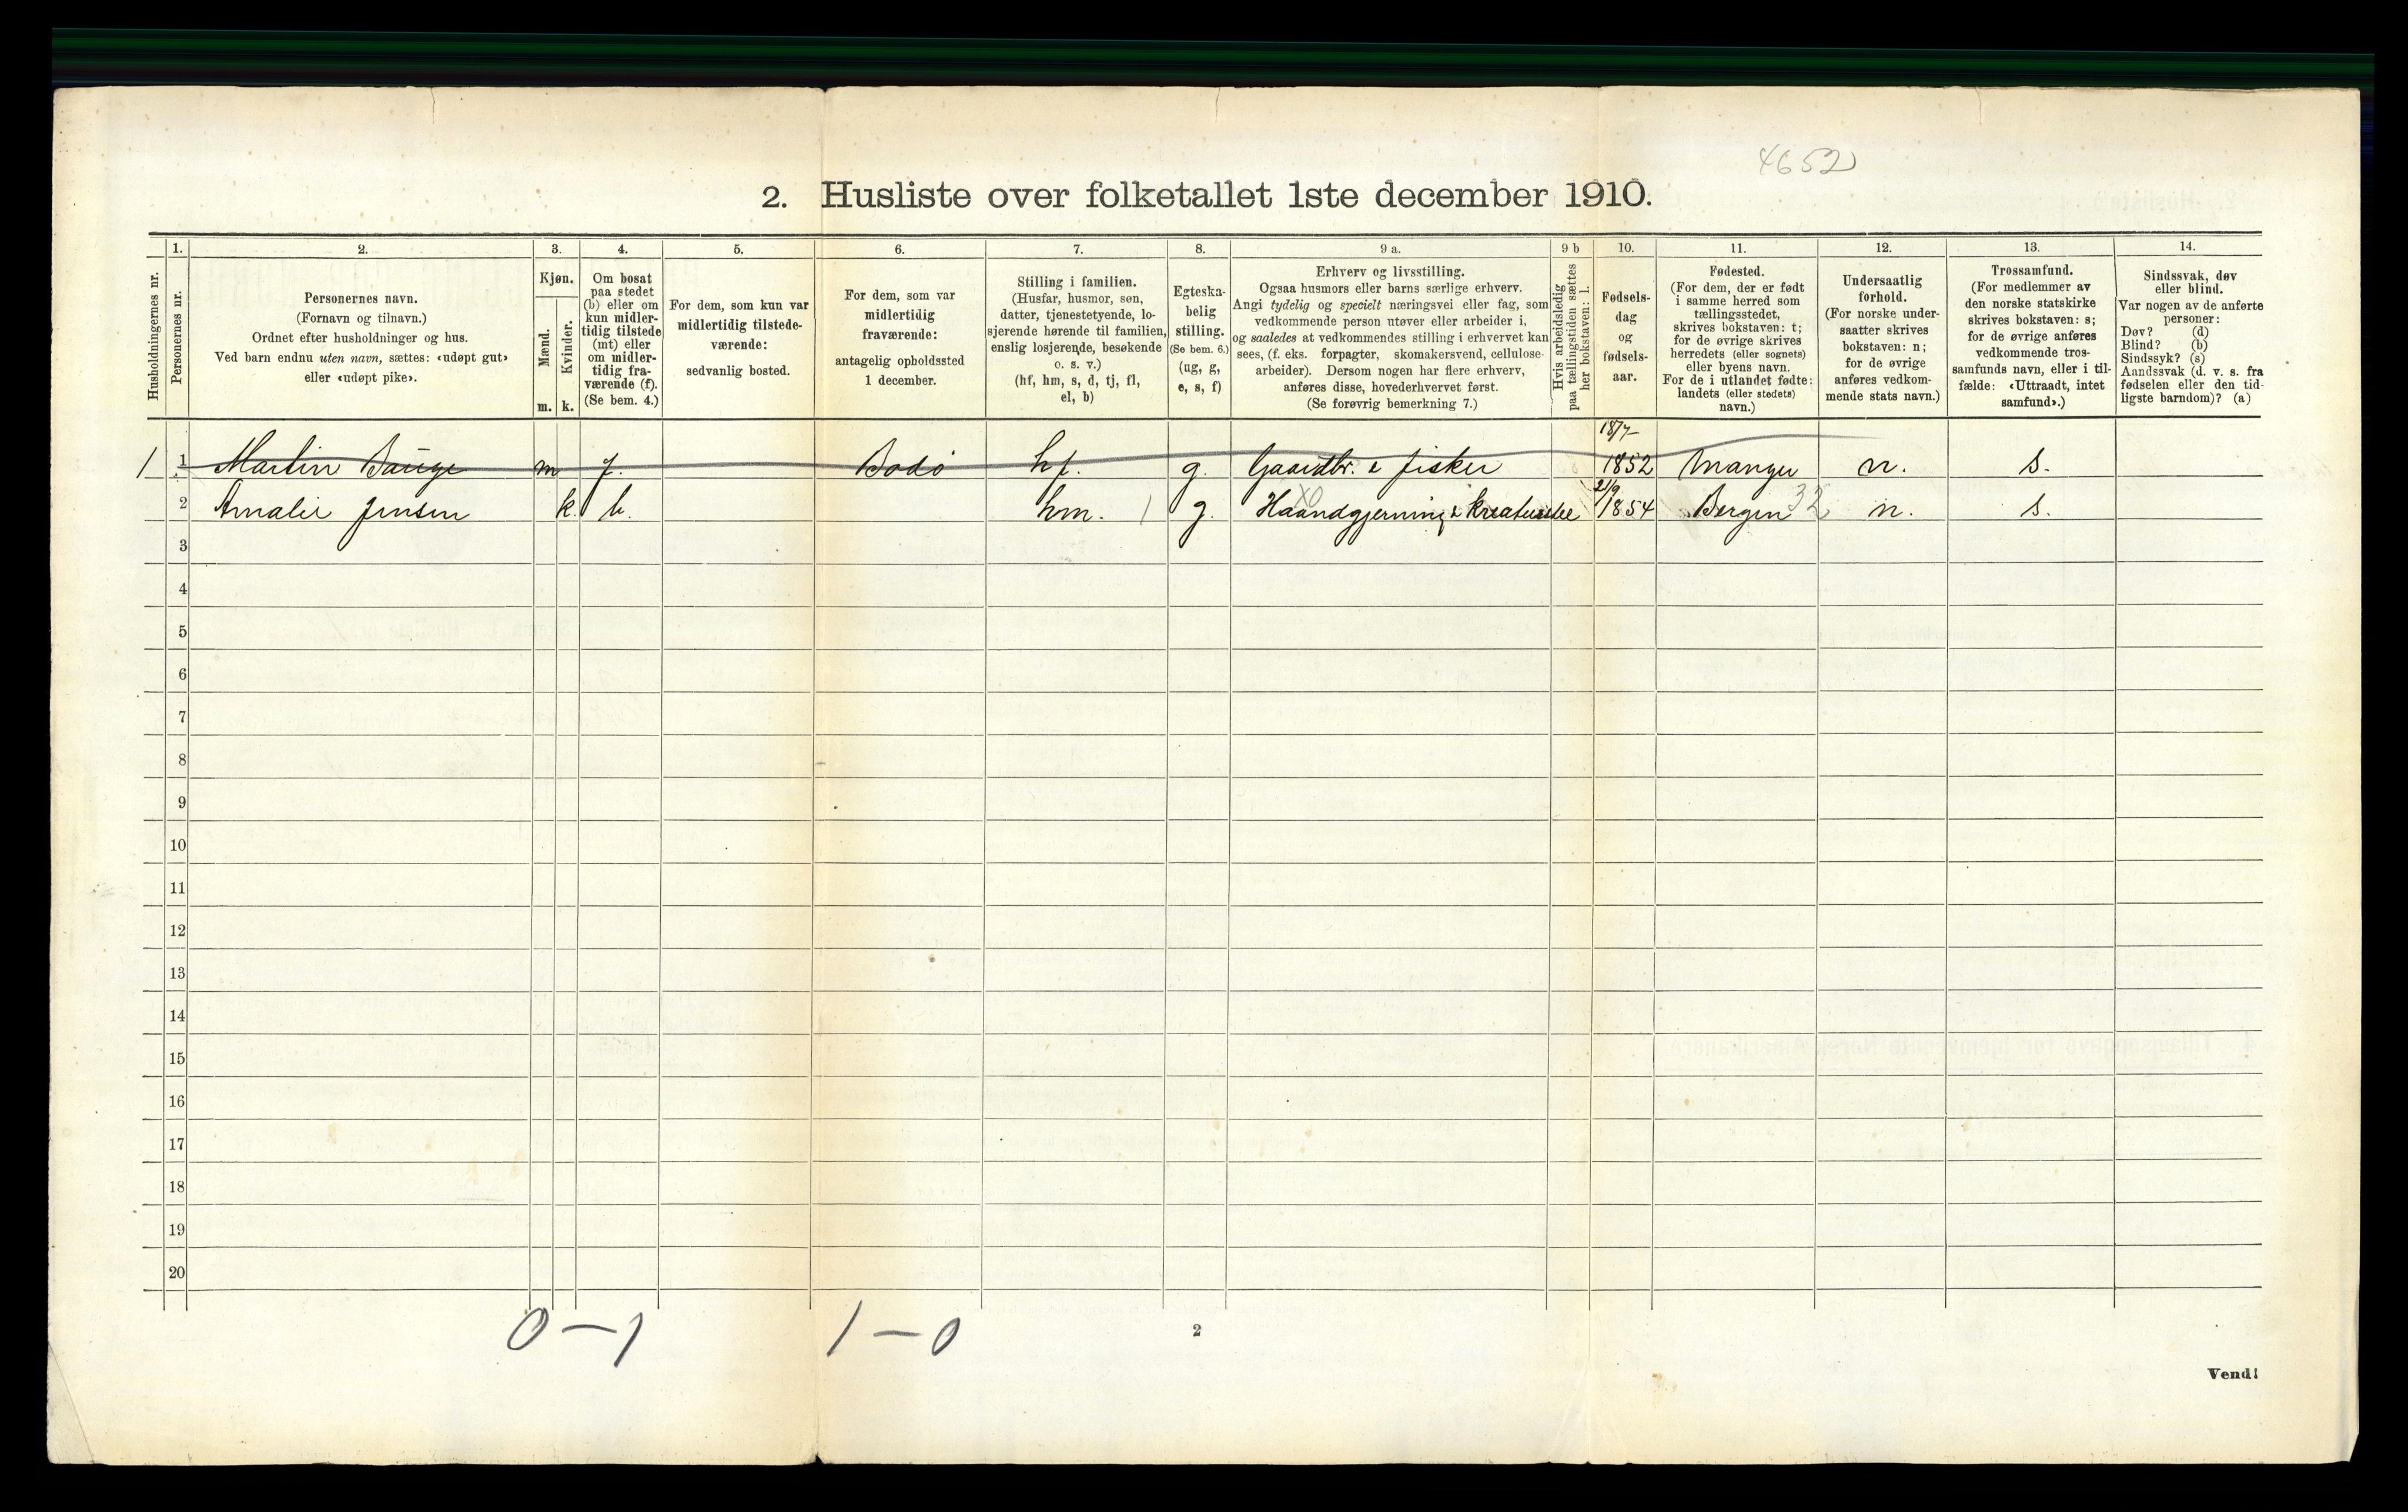 4652
2. Husliste over folketallet 1ste december 1910.
Husholdningernes nr.
1.
Personernes nr.
2.
Personernes navn.
(Fornavn og tilnavn.)
Ordnet efter husholdninger og hus.
Ved barn endnu uten navn, sættes: «udøpt gut»
eller «udøpt pike».
3.
Kjøn.
Mænd.
Kvinder.
m. k.
4.
Om bosat
paa stedet
(b) eller om
kun midler-
tidig tilstede
(mt) eller
om midler-
tidig fra-
værende (f).
(Se bem. 4.)
5.
For dem, som kun var
midlertidig tilstede-
værende:
sedvanlig bosted.
6.
For dem, som var
midlertidig
fraværende:
antagelig opholdssted
1 december.
7.
Stilling i familien.
(Husfar, husmor, søn,
datter, tjenestetyende, lo-
sjerende hørende til familien,
enslig losjerende, besøkende
o. s. v.)
(hf, hm, s, d, tj, fl,
el, b)
8.
Egteska-
belig
stilling.
(Se bem. 6.)
(ug, g,
e, s, f)
9 a.
Erhverv og livsstilling.
Ogsaa husmors eller barns særlige erhverv.
Angi tydelig og specielt næringsvei eller fag, som
vedkommende person utøver eller arbeider i,
og saaledes at vedkommendes stilling i erhvervet kan
sees, (f. eks. forpagter, skomakersvend, cellulose-
arbeider). Dersom nogen har flere erhverv,
anføres disse, hovederhvervet først.
(Se forøvrig bemerkning 7.)
9 b
Hvis arbeidsledig
paa tællingstiden sættes
her bokstaven: l.
10.
Fødsels-
dag
og
fødsels-
aar.
11.
Fødested.
(For dem, der er født
i samme herred som
tællingsstedet,
skrives bokstaven: t;
for de øvrige skrives
herredets (eller sognets)
eller byens navn.
For de i utlandet fødte:
landets (eller stedets)
navn.)
12.
Undersaatlig
forhold.
(For norske under-
saatter skrives
bokstaven: n;
for de øvrige
anføres vedkom-
mende stats navn.)
13.
Trossamfund.
(For medlemmer av
den norske statskirke
skrives bokstaven: s;
for de øvrige anføres
vedkommende tros-
samfunds navn, eller i til-
fælde: «Uttraadt, intet
samfund».)
14.
Sindssvak, døv
eller blind.
Var nogen av de anførte
personer:
Døv? (d)
Blind? (b)
Sindssyk? (s)
Aandssvak (d. v. s. fra
fødselen eller den tid-
ligste barndom)? (a)
1 1 Martin Bauge m f. Bodø hf. g. Gaardbr. & fisker 18/7- 1852 Manger n. s.
2 Amalie Jensen k. b. hm. 1 g. X0 Haandgjerning & kreaturstel 21/9 1854 Bergen 32 n. s.
3
4
5
6
7
8
9
10
11
12
13
14
15
16
17
18
19
20
0 — 1 1 — 0
2
Vend!